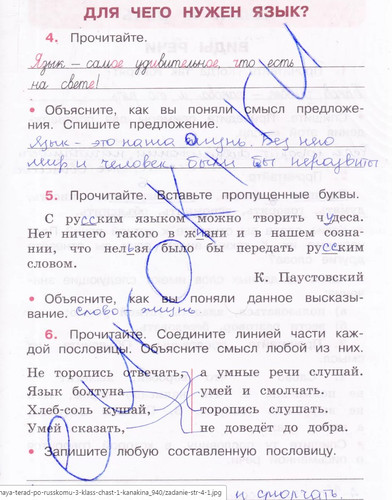 ДЛЯ ЧЕГО НУЖЕН ЯЗЫК?
4. Прочитайте.
Язык – самое удивительное, что есть
на свете!
• Объясните, как вы поняли смысл предложе-
ния. Спишите предложение.
Язык - это наша жизнь. Без него
мир и человек были бы неразвиты
5. Прочитайте. Вставьте пропущенные буквы.
С русским языком можно творить чудеса.
Нет ничего такого в жизни и в нашем созна-
нии, что нельзя было бы передать русским
словом.
К. Паустовский
• Объясните, как вы поняли данное высказы-
вание. слово - жизнь
6. Прочитайте. Соедините линией части каж-
дой пословицы. Объясните смысл любой из них.
Не торопись отвечать, а умные речи слушай.
Язык болтуна умей и смолчать.
Хлеб-соль кушай, торопись слушать.
Умей сказать, не доведёт до добра.
• Запишите любую составленную пословицу.
и смолчать
naya-terad-po-russkomu-3-klass-chast-1-kanakina_940/zadanie-str-4-1.jpg